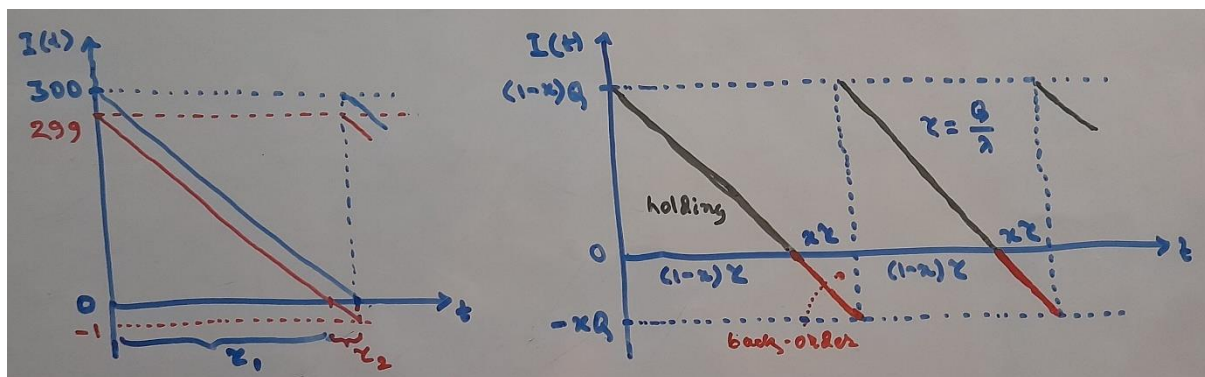 I(t)
300
299
0
-1
t
τ₁
τ₂
I(t)
(1-x)Q
τ = Q/λ
holding
xτ
xτ
0
(1-x)τ
(1-x)τ
t
-xQ
back-order